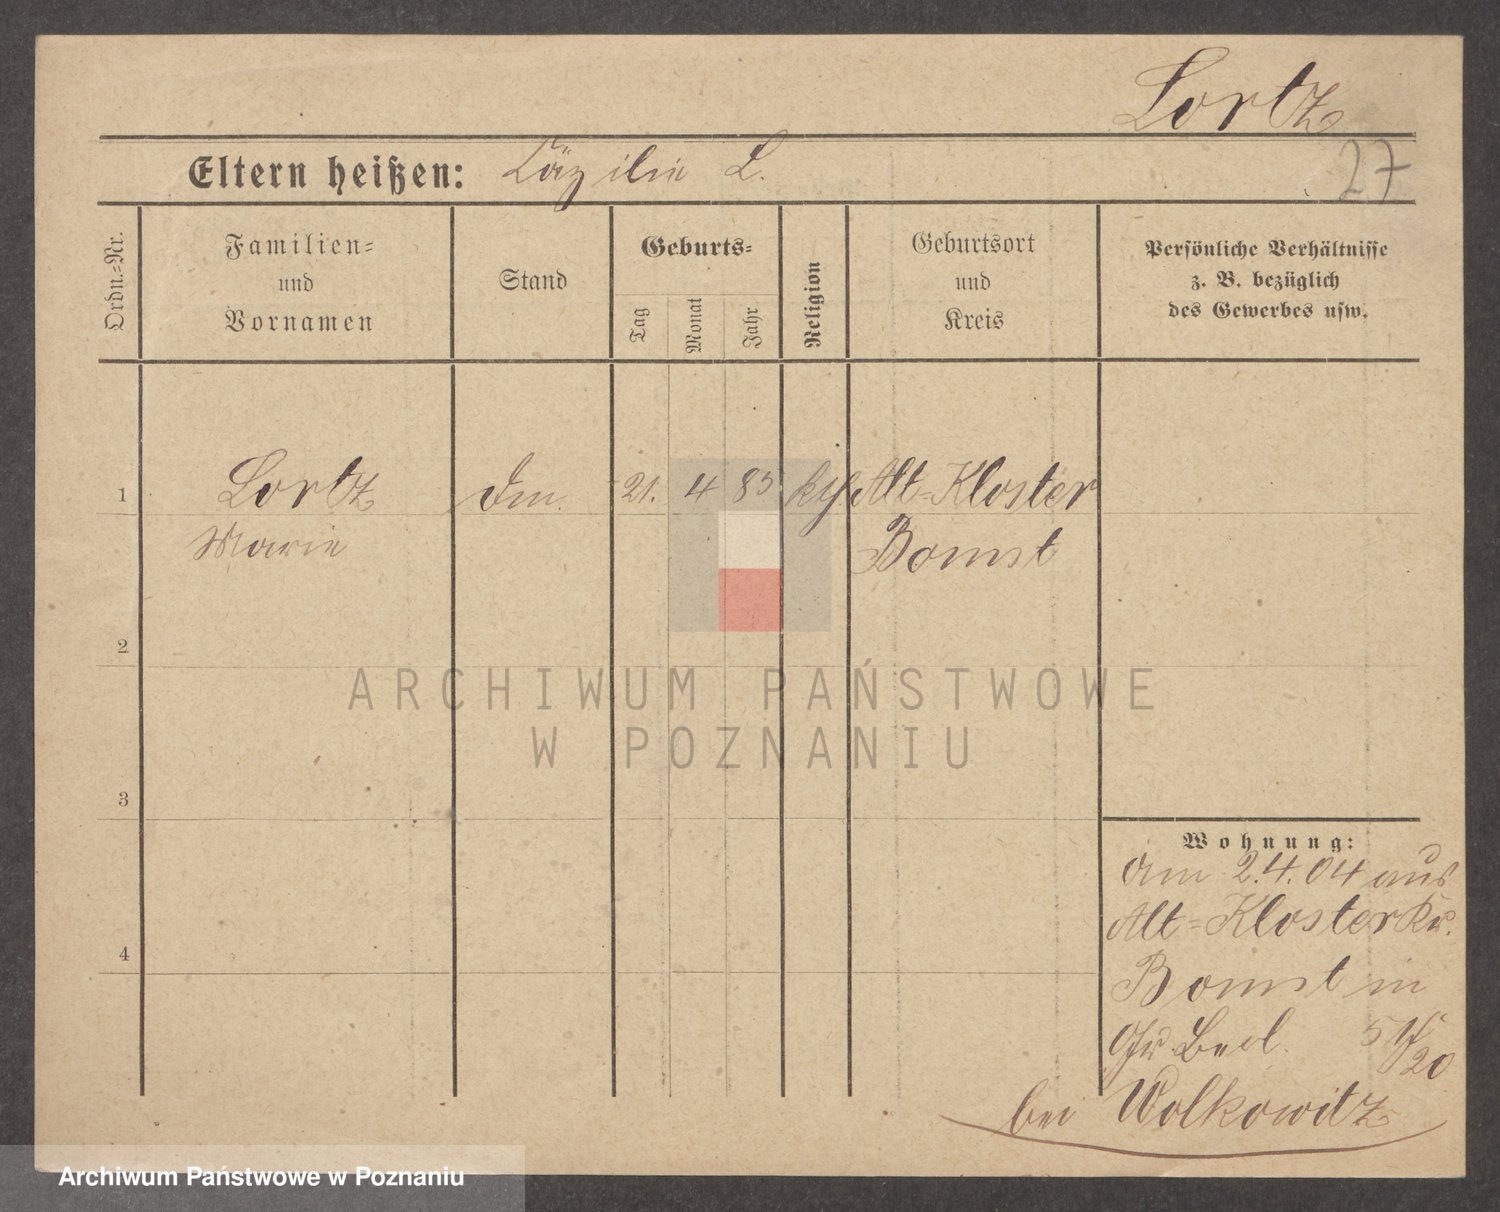 Lortz
Eltern heißen: Cäzilie L.
27
Ordn.=Nr.
Familien=
und
Vornamen
Stand
Geburts=
Tag
Monat
Jahr
Religion
Geburtsort
und
Kreis
Persönliche Verhältnisse
z. B. bezüglich
des Gewerbes usw.
1
Lortz
Marie
21. 4 85
Alt=Kloster
Bomst
2
ARCHIWUM PAŃSTWOWE
W POZNANIU
3
Wohnung:
am 2.4.04 aus
Alt=Kloster Kr.
Bomst in
4
20
bei Wolkowitz
Archiwum Państwowe w Poznaniu